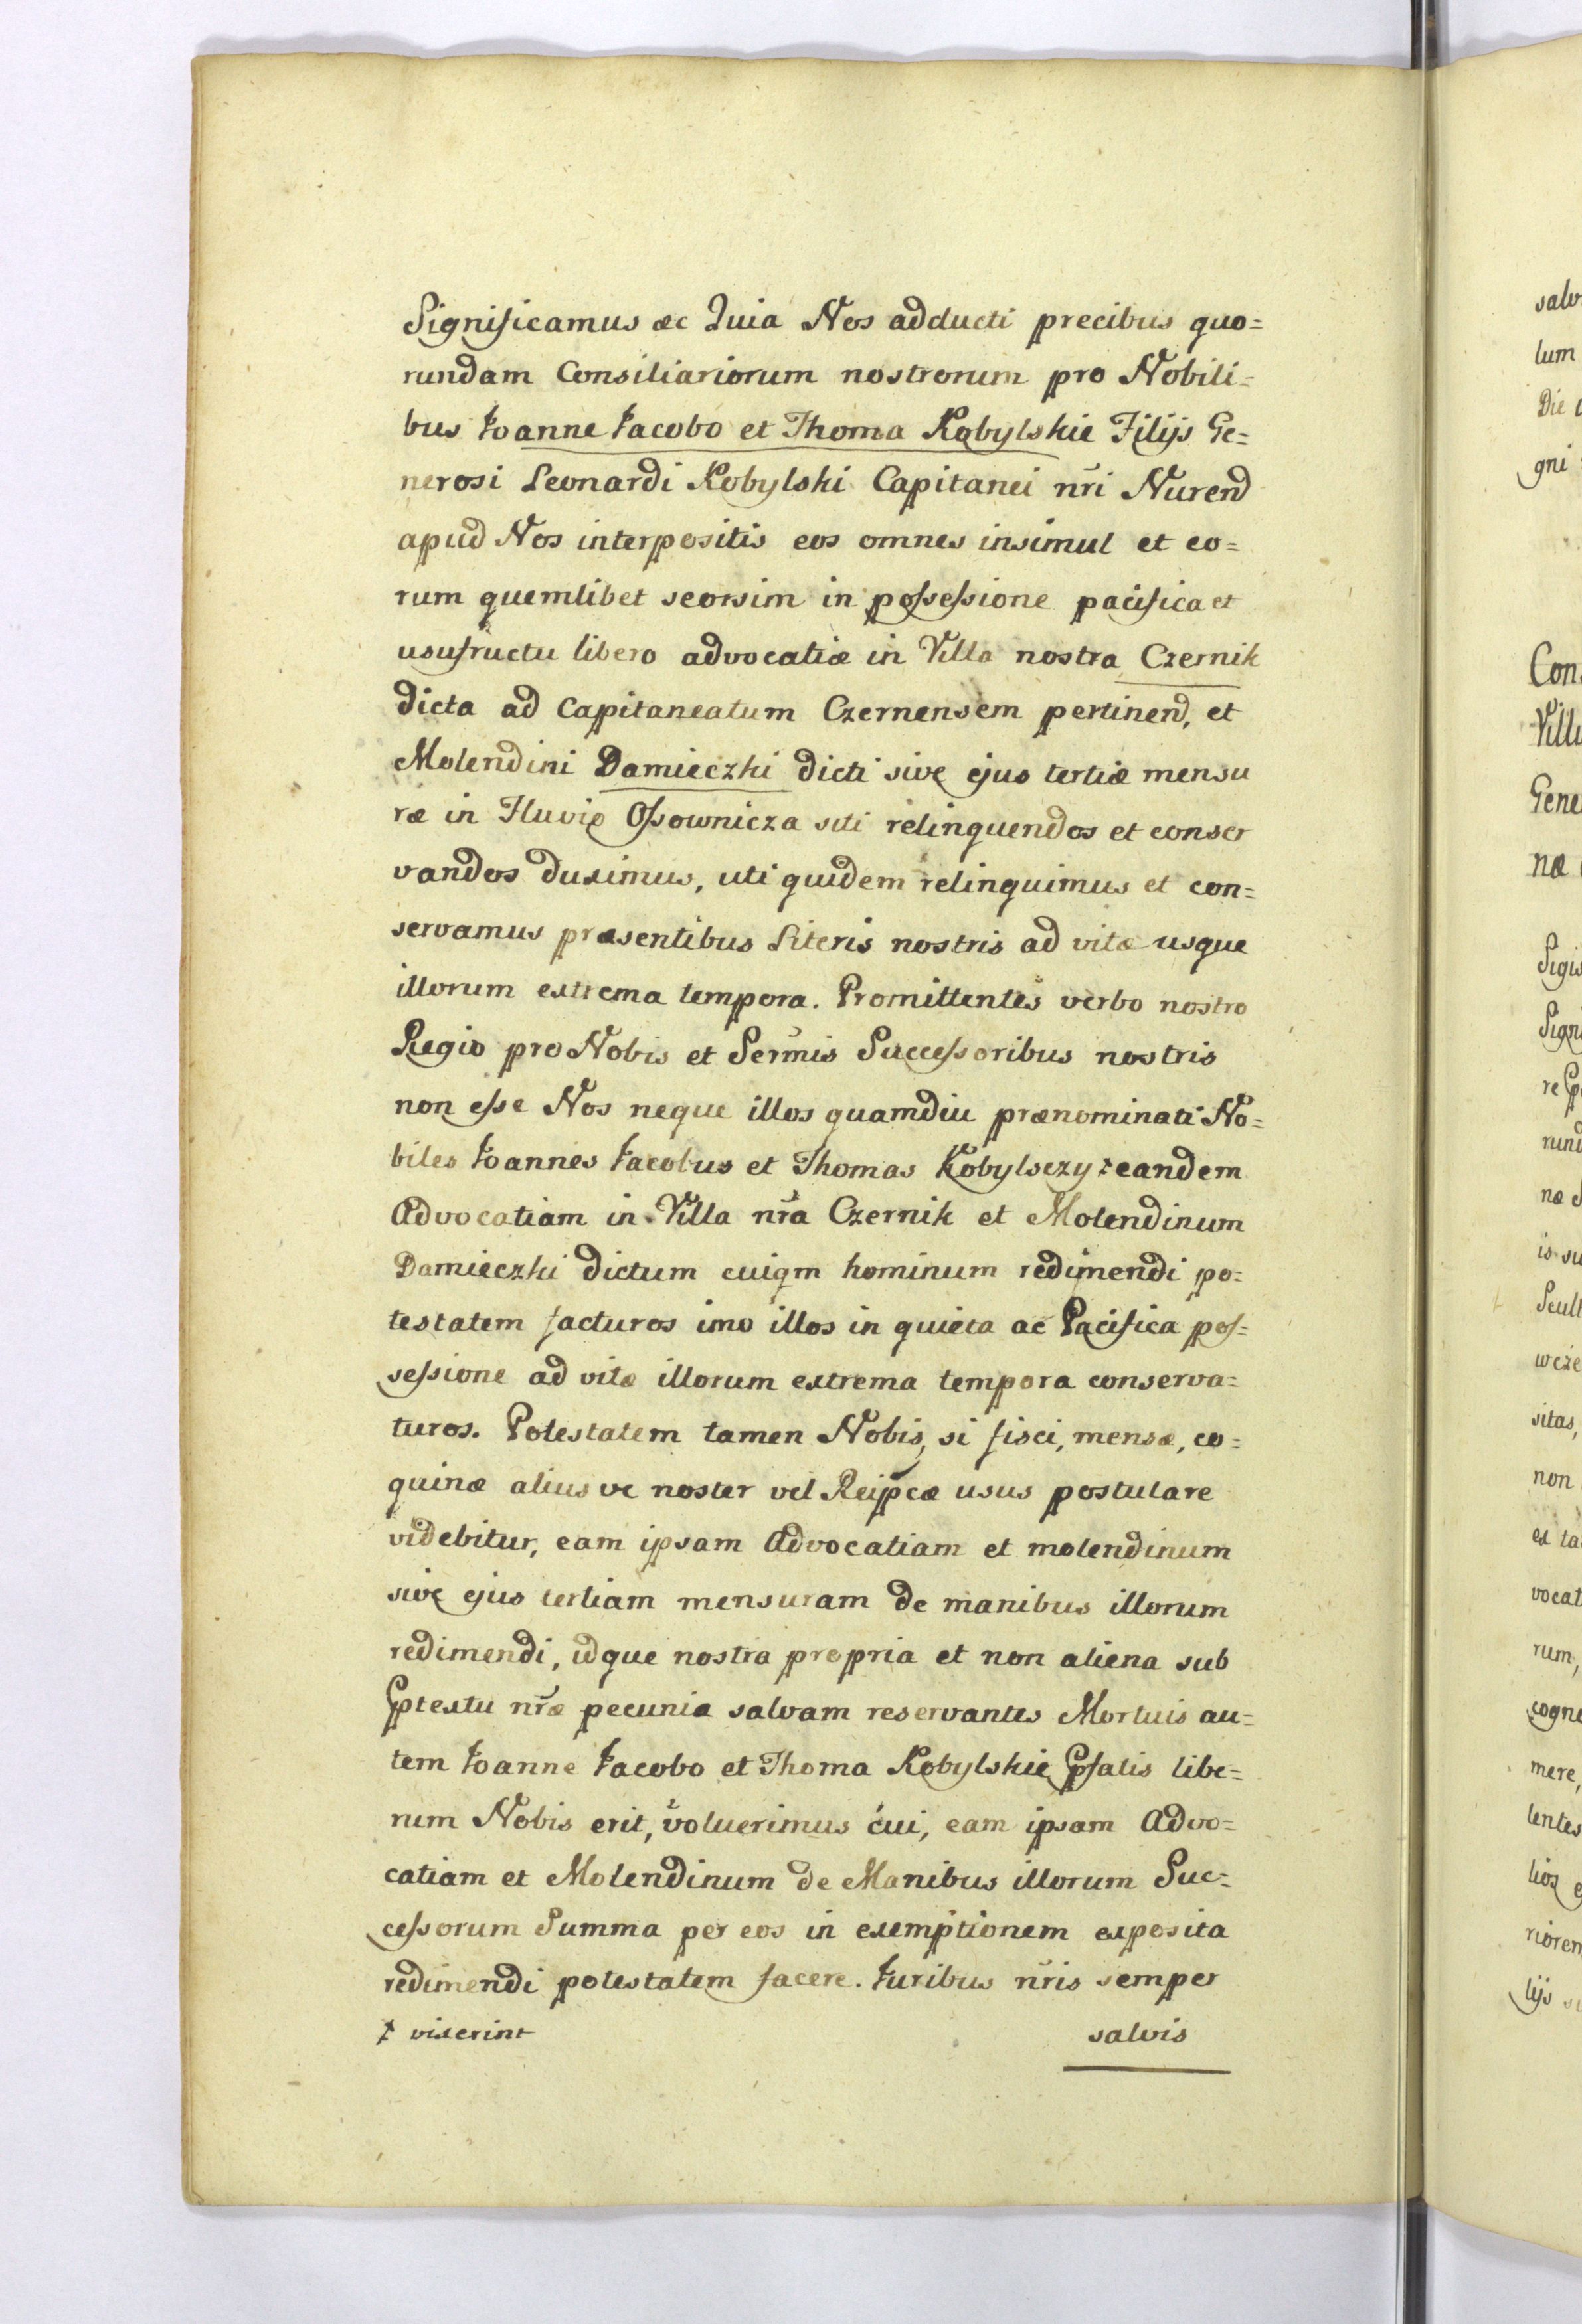 Significamus &c Quia Nos adducti precibus quo=
rundam Consiliariorum nostrorum pro Nobili=
bus Joanne Jacobo et Thoma Kobylskie Filijs Ge=
nerosi Leonardi Kobylski Capitanei nr̃i Nurend
apud Nos interpositis eos omnes insimul et eo=
rum quemlibet seorsim in possessione pacifica et
usufructu libero advocatiæ in Villa nostra Czernik
dicta ad Capitaneatum Czernensem pertinend, et
Molendini Damieczki dicti sive ejus tertiæ mensu
ræ in Fluvio Ossownicza siti relinquendos et conser
vandos duximus, uti quidem relinquimus et con=
servamus præsentibus Literis nostris ad vitæ usque
illorum extrema tempora. Promittentes verbo nostro
Regio pro Nobis et Serm̃is Successoribus nostris
non esse Nos neque illos quamdiu prænominati No=
biles Joannes Jacobus et Thomas Kobylsczy ‡ eandem
Advocatiam in Villa nr̃a Czernik et Molendinum
Damieczki dictum cuiqm hominum redimendi po=
testatem facturos imo illos in quieta ac Pacifica pos=
sessione ad vitæ illorum extrema tempora conserva=
turos. Potestatem tamen Nobis, si fisci, mensæ, co=
quinæ alius ve noster vel Reipcæ usus postulare
videbitur, eam ipsam Advocatiam et molendinum
sive ejus tertiam mensuram de manibus illorum
redimendi, idque nostra propria et non aliena sub
Ptextu nr̃æ pecunia salvam reservantes Mortuis au=
tem Joanne Jacobo et Thoma Kobylskie Pfatis libe=
rum Nobis erit, voluerimus cui, eam ipsam Advo=
catiam et Molendinum de Manibus illorum Suc=
cessorum Summa per eos in exemptionem exposita
redimendi potestatem facere. Juribus nr̃is semper
‡ vixerint salvis
salv
lum
Die
gni
Con
Gene
næ
Sigis
Sign
rund
is su
Scult
sitas,
non
vocat
rum,
cogn
mere,
lentes
lios e
rioren
lijs